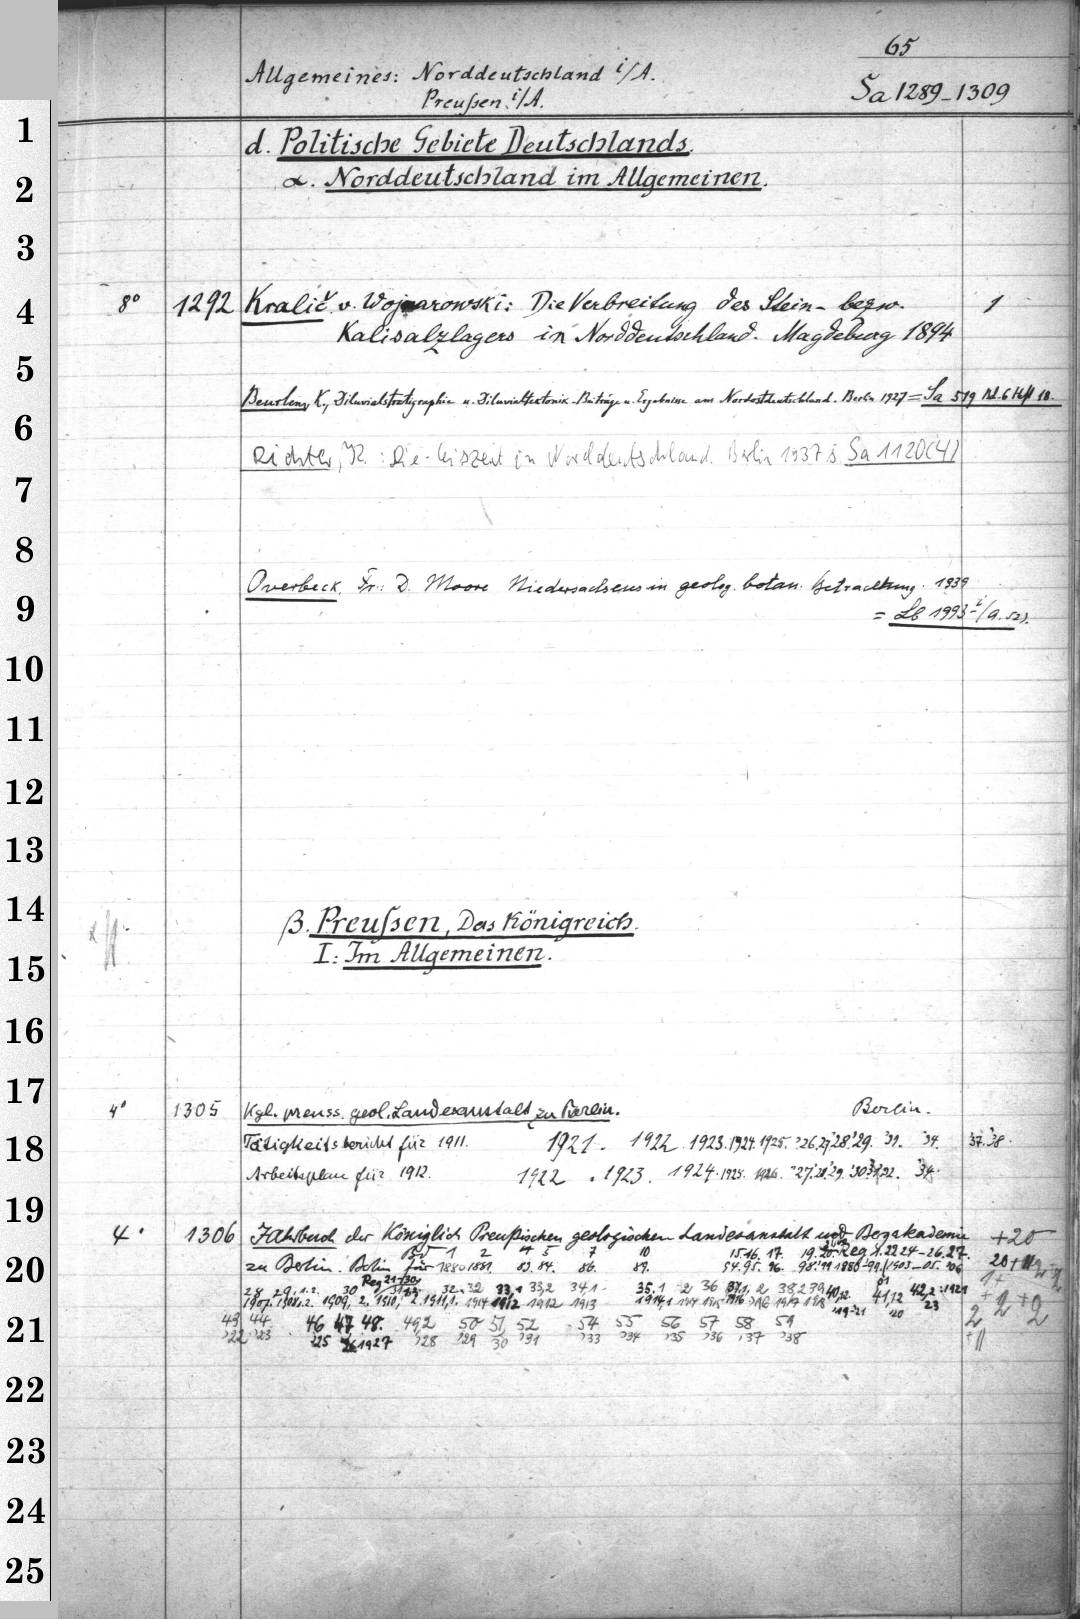 65
Allgemeines: Norddeutschland i/A.
Preußen i/A.
Sa 1289-1309
1
d. Politische Gebiete Deutschlands.
2
α. Norddeutschland im Allgemeinen.
3
4
8° 1292 Kralič v. Wojnarowski: Die Verbreitung des Stein- bezw. 1
Kalisalzlagers in Norddeutschland. Magdeburg 1894
5
Beurlen, K., Diluvialstratigraphie u. Diluvialtektonik. Beiträge u. Ergebnisse aus Nordostdeutschland. Berlin 1927 = Sa 519 Bd. 6 Heft 18.
6
Richter, K.: Die Eiszeit in Norddeutschland. Berlin 1937 s. Sa 1120(4)
7
8
Overbeck, Fr.: D. Moore Niedersachsens in geolog. botan. Betrachtung. 1939
9
= Lb 1993
10
11
12
13
14
β. Preußen, Das Königreich.
I: Im Allgemeinen.
15
16
17
4° 1305 Kgl. preuss. geol. Landesanstalt zu Berlin. Berlin.
18
Tätigkeitsbericht für 1911. 1921. 1922 1923. 1924. 1925. '26. 27 '28 '29. '31. '34. 37. 38.
Arbeitsplan für 1912. 1922. 1923. 1924. 1925. 1926. '27. 28. 29. '30 34.
19
4° 1306 Jahrbuch der Königlich Preußischen geologischen Landesanstalt und Bergakademie +20
20
zu Berlin. Berlin für 1880 1881. 83. 84. 86. 89.
Bd 1 2 4 5 7 10 15. 16. 17. 19. 20. Reg 1. 22 24-26. 27.
21
43 44. 46 47 48. 49,2 50 51 52 54 55 56 57 58 59
'22 '23 '25 '26 1927 '28 '29 30 '31 '33 '34 '35 '36 '37 '38
22
23
24
25